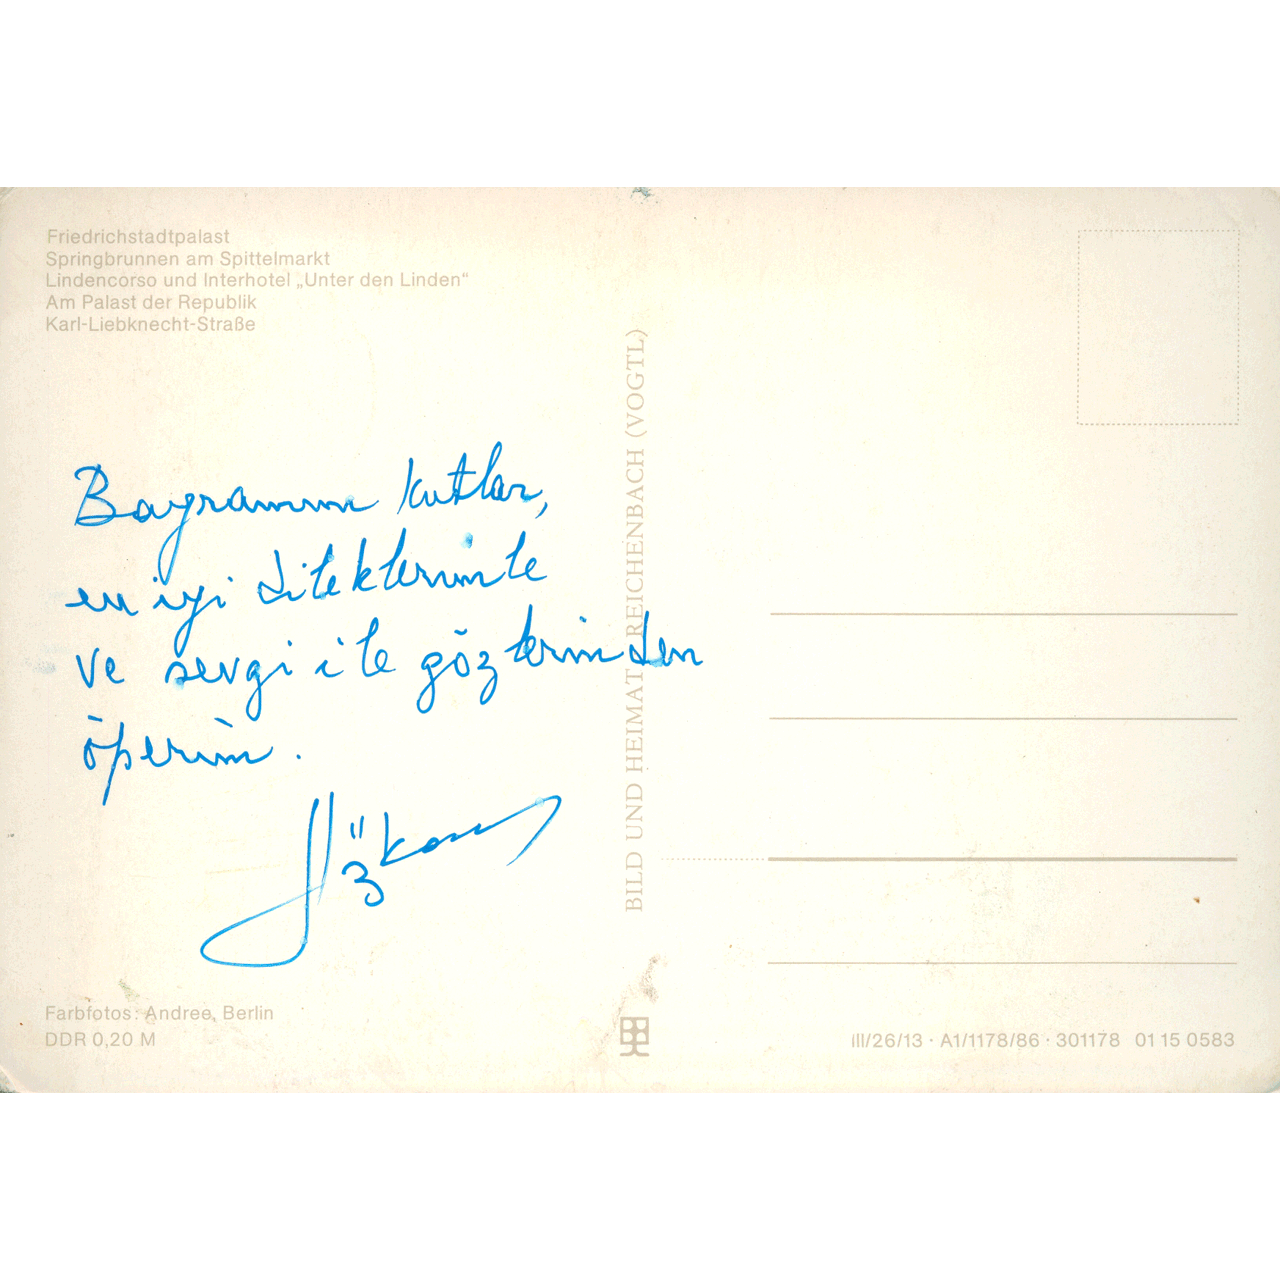 Friedrichstadtpalast
Springbrunnen am Spittelmarkt
Lindencorso und Interhotel „Unter den Linden“
Am Palast der Republik
Karl-Liebknecht-Straße
Bayramını kutlar,
en iyi dileklerimle
ve sevgi ile gözlerinden
öperim.
BILD UND HEIMAT REICHENBACH (VOGTL)
Farbfotos: Andree, Berlin
DDR 0,20 M
III/26/13 · A1/1178/86 · 301178 01 15 0583